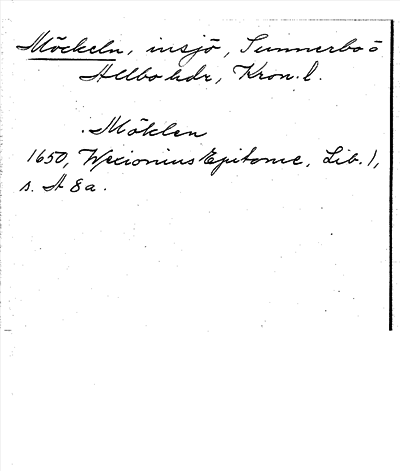 Möckeln, insjö, Sunnerbo o
Allbo hdr, Kron. l.
Möklen
1650, Wexionius Epitome, Lib. 1,
s. A 8a.